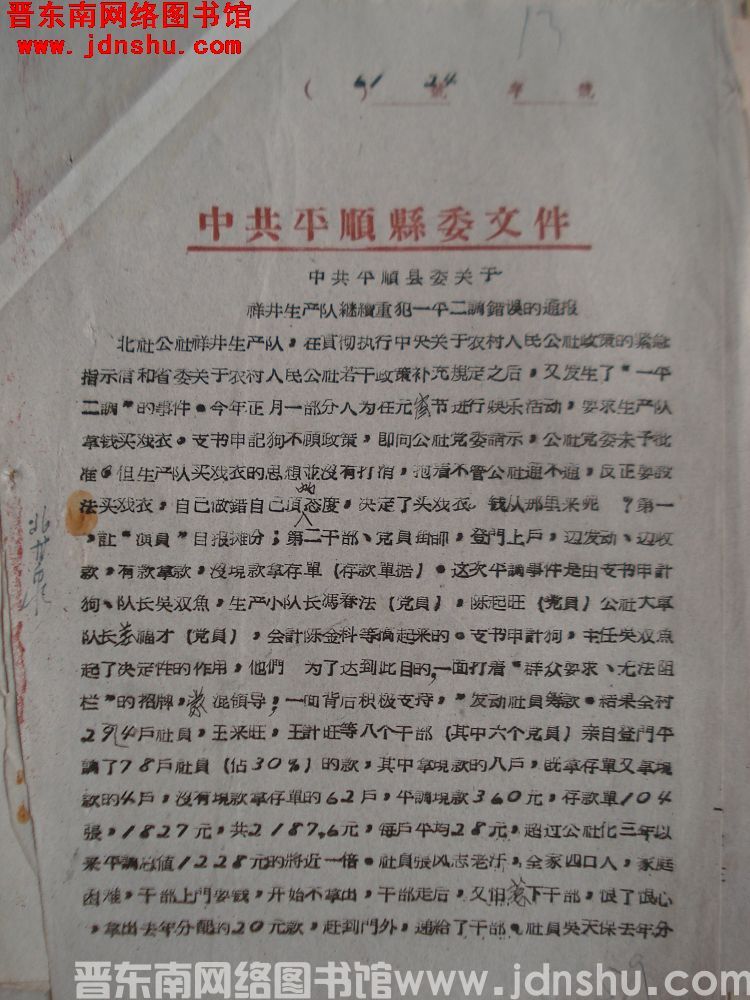 晋东南网络图书馆
www.jdnshu.com
13
( 61 ) 號 24 年 號
中共平順縣委文件
中共平順县委关于
祥井生产队継續重犯一平二調錯誤的通报
北社公社祥井生产队，在貫彻执行中央关于农村人民公社政策的紧急
指示信和省委关于农村人民公社若干政策补充規定之后，又发生了“一平
二調”的事件。今年正月一部分人为在元宵节进行娱乐活动，要求生产队
拿钱买戏衣。支书申記狗不顧政策，即向公社党委請示，公社党委未予批
准。但生产队买戏衣的思想並沒有打消，抱着不管公社通不通，反正要設
法买戏衣，自己做錯自己頂的态度，决定了买戏衣 钱从那里来呢 ？第一
，訨“演員”自报摊分；第二干部、党員掛帅，登門上戶，辺发动、辺收
款，有款拿款，沒現款拿存單（存款單据）。这次平調事件是由支书申計
狗、队长吳双魚，生产小队长馮春法（党員），陈起旺（党員）公社大軍
队长 福才（党員），会計陈金科等搞起来的。支书申計狗，主任吳双魚
起了决定性的作用，他們 为了达到此目的，一面打着“群众要求、无法阻
栏”的招牌，蒙混領导；一面背后积极支持，“发动社員筹款。結果全村
294戶社員，王来旺，王計旺等八个干部（其中六个党員）亲自登門平
調了78戶社員（佔30%）的款，其中拿現款的八戶，既拿存單又拿現
款的4戶，沒有現款拿存單的62戶，平調現款360元，存款單104
張，1827元，共2187.6元，每戶平均28元，超过公社化三年以
来平調总值1228元的將近一倍。社員張风志老汗，全家四口人，家庭
困难，干部上門要钱，开始不拿出，干部走后，又怕惹下干部，恨了恨心
，拿出去年分配的20元款，赶到門外，递給了干部。社員吳天保去年分
晋东南网络图书馆www.jdnshu.com